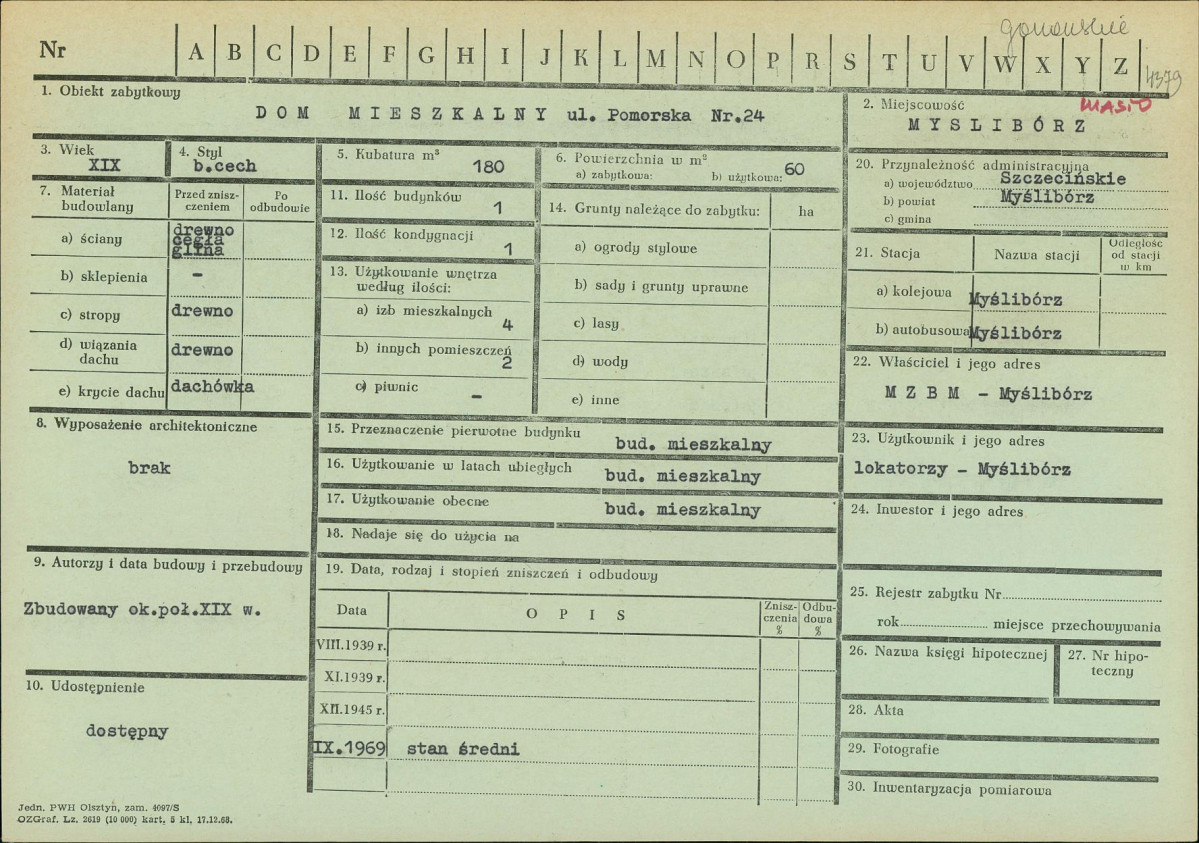 gorzowskie
Nr A B C D E F G H I J K L M N O P R S T U V W X Y Z
4379
1. Obiekt zabytkowy
DOM MIESZKALNY ul. Pomorska Nr.24
2. Miejscowość MIASTO
MYSLIBÓRZ
3. Wiek
XIX
4. Styl
b.cech
5. Kubatura m³
180
6. Powierzchnia w m²
a) zabytkowa: b) użytkowa: 60
20. Przynależność administracyjna
a) województwo Szczecińskie
b) powiat Myślibórz
c) gmina
7. Materiał budowlany
Przed zniszczeniem
Po odbudowie
a) ściany drewno cegła glina
b) sklepienia -
c) stropy drewno
d) wiązania dachu drewno
e) krycie dachu dachówka
11. Ilość budynków
1
12. Ilość kondygnacji
1
13. Użytkowanie wnętrza
według ilości:
a) izb mieszkalnych
4
b) innych pomieszczeń
2
c) piwnic -
14. Grunty należące do zabytku: ha
a) ogrody stylowe
b) sady i grunty uprawne
c) lasy
d) wody
e) inne
21. Stacja Nazwa stacji Odległość od stacji w km
a) kolejowa Myślibórz
b) autobusowa Myślibórz
22. Właściciel i jego adres
M Z B M - Myślibórz
8. Wyposażenie architektoniczne
brak
15. Przeznaczenie pierwotne budynku bud. mieszkalny
16. Użytkowanie w latach ubiegłych bud. mieszkalny
17. Użytkowanie obecne bud. mieszkalny
18. Nadaje się do użycia na
23. Użytkownik i jego adres
lokatorzy - Myślibórz
24. Inwestor i jego adres
9. Autorzy i data budowy i przebudowy
Zbudowany ok.poł.XIX w.
10. Udostępnienie
dostępny
19. Data, rodzaj i stopień zniszczeń i odbudowy
Data OPIS Zniszczenia % Odbudowa %
VIII.1939 r.
XI.1939 r.
XII.1945 r.
IX.1969 stan średni
25. Rejestr zabytku Nr
rok miejsce przechowywania
26. Nazwa księgi hipotecznej
27. Nr hipoteczny
28. Akta
29. Fotografie
30. Inwentaryzacja pomiarowa
Jedn. PWH Olsztyn, zam. 4097/S
OZGraf. Lz. 2619 (10 000) kart. 5 kl. 17.12.68.